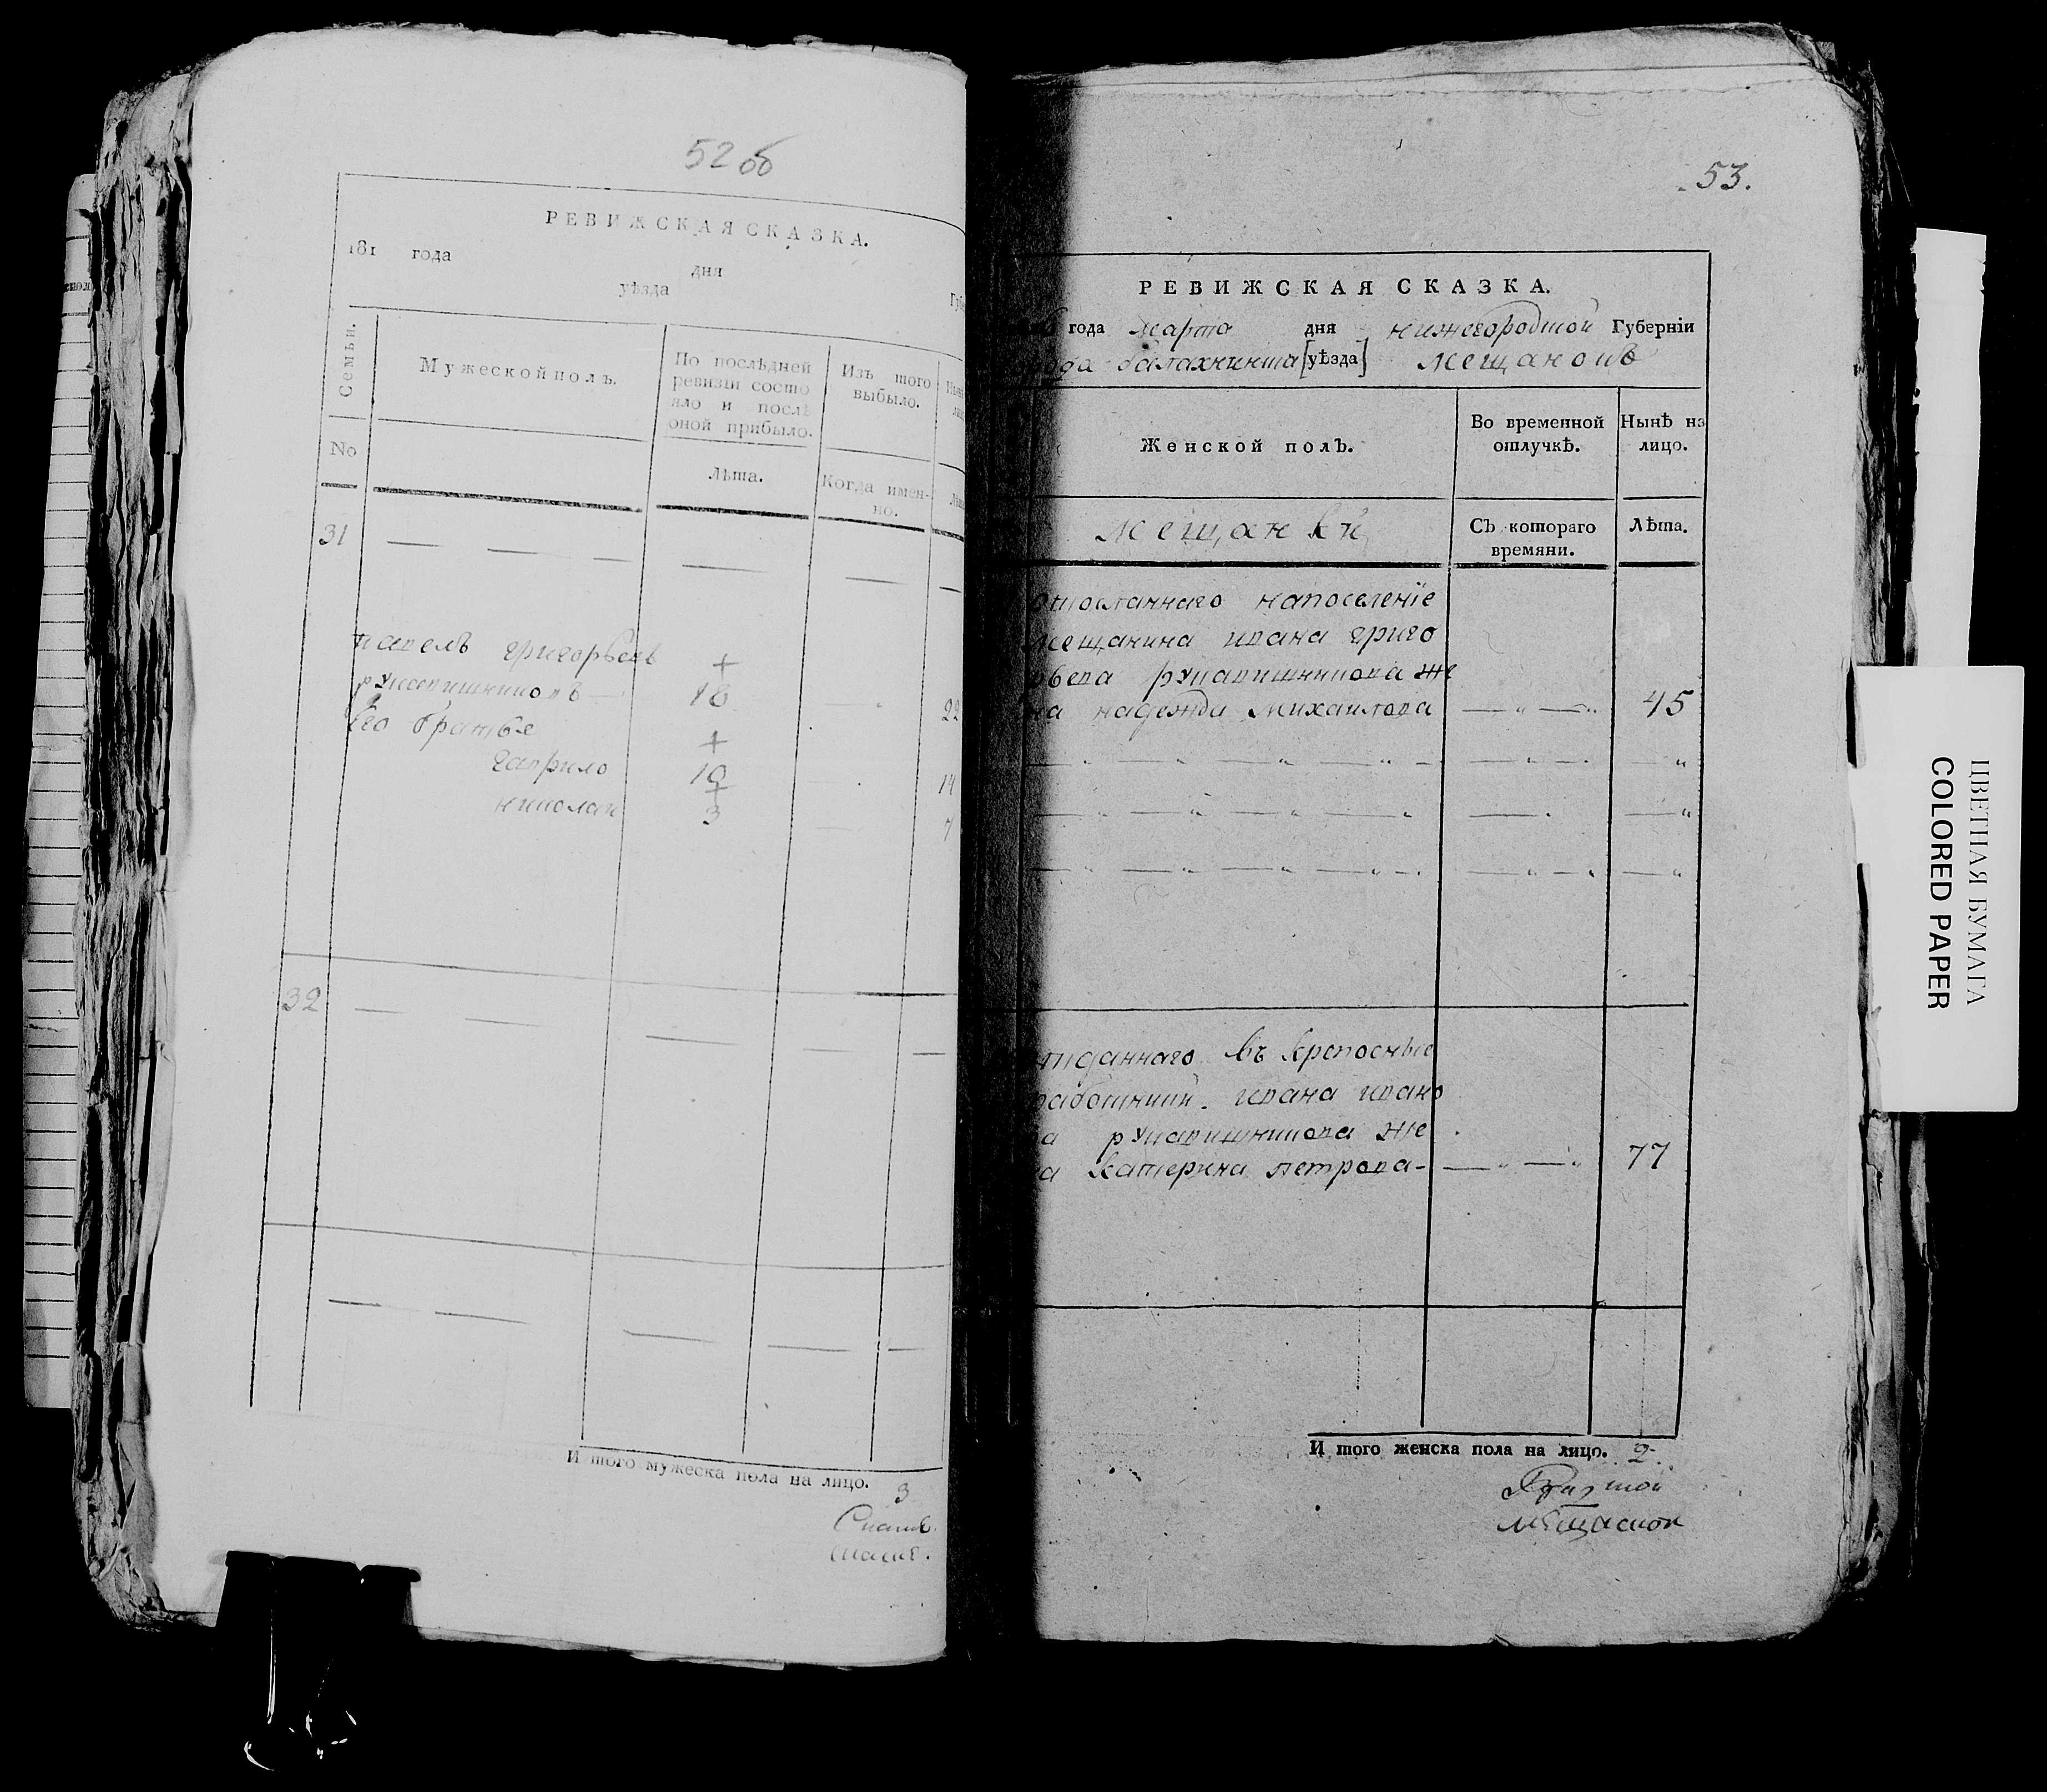 52 об
РЕВИЖСКАЯ СКАЗКА.
181 года дня
уѣзда
Семьи.
Мужеской полъ.
По послѣдней
ревизіи состо
яло и послѣ
оной прибыло.
Изъ того
выбыло.
No
Лѣта.
Когда имен-
но.
31
павелъ григорьевъ
рукавишниковъ 18 22
Его братья
гаврило 10 14
николаи 3 7
32
И того мужеска пола на лицо. 3
53.
РЕВИЖСКАЯ СКАЗКА.
года марта дня нижегородской Губерніи
балахнинска [уѣзда] мещанскъ
Женской полъ.
Во временной
отлучкѣ.
Нынѣ на
лицо.
мещанки
Съ котораго
времяни.
Лѣта.
отосланнаго напоселеніе
мещанина ивана григо
рьева рукавишникова же
на надежда михаилова 45
отданнаго въ крепосные
работники ивана ивано
ва рукавишникова же
на катерина петрова 77
И того женска пола на лицо. 2.
ЦВЕТНАЯ БУМАГА
COLORED PAPER